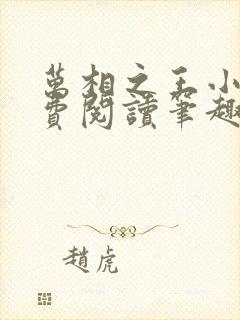 萬相之王小
費閱讀筆趣
趙虎